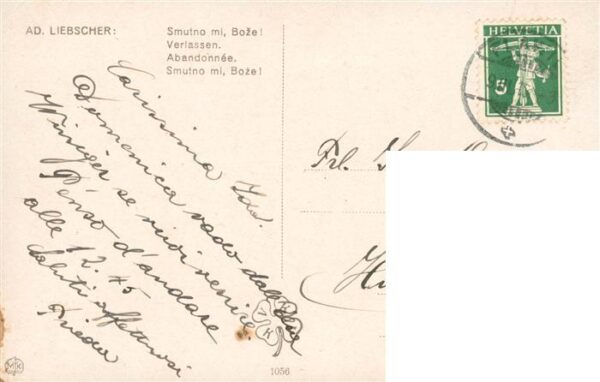 AD. LIEBSCHER:
Smutno mi, Bože!
Verlassen.
Abandonnée.
Smutno mi, Bože!
HELVETIA
5
Carissima Ida.
Domenica vado dalla
Winiger se vuoi venire.
Penso d'andare
alle 12.45
Saluti affettuosi
Frieda
Frl.
VK
MTK
1056